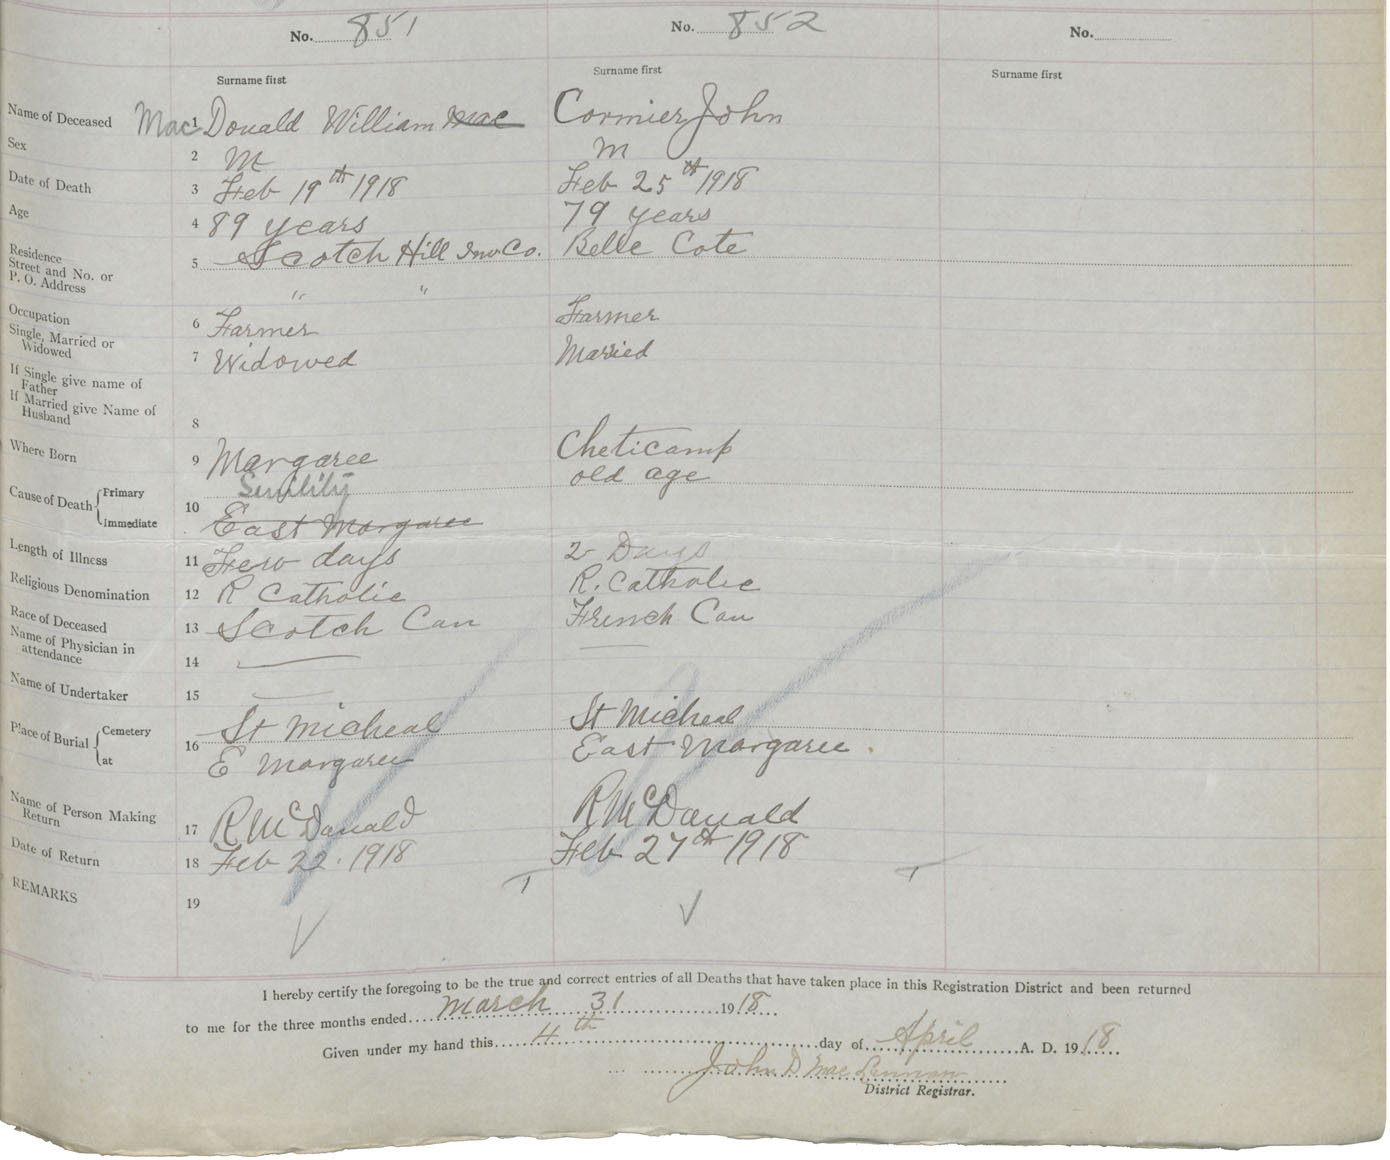 No. 851 No. 852 No.
Surname first Surname first Surname first
Name of Deceased 1 MacDonald William Mac Cormier John
Sex 2 M M
Date of Death 3 Feb 19th 1918 Feb 25th 1918
Age 4 89 years 79 years
Residence
Street and No. or
P. O. Address 5 Scotch Hill Inv Co. Belle Cote
" "
Occupation 6 Farmer Farmer
Single, Married or
Widowed 7 Widowed Married
If Single give name of
Father
If Married give Name of
Husband 8
Where Born 9 Margaree Cheticamp
Cause of Death { Primary Senility old age
10
Immediate East Margaree
Length of Illness 11 Few days 2 Days
Religious Denomination 12 R Catholic R. Catholic
Race of Deceased 13 Scotch Can French Can
Name of Physician in
attendance 14 — —
Name of Undertaker 15 —
Place of Burial { Cemetery 16 St Micheal St Micheal
at E Margaree East Margaree.
Name of Person Making
Return 17 R McDanald R McDanald
Date of Return 18 Feb 22. 1918 Feb 27th 1918
REMARKS 19
I hereby certify the foregoing to be the true and correct entries of all Deaths that have taken place in this Registration District and been returned
to me for the three months ended March 31 1918
Given under my hand this 4th day of April A. D. 1918
John D MacLennan
District Registrar.